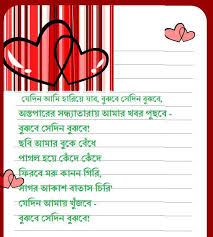 যেদিন আমি হারিয়ে যাব, বুঝবে সেদিন বুঝবে,
অস্তপারের সন্ধ্যাতারায় আমার খবর পুছবে -
বুঝবে সেদিন বুঝবে!
ছবি আমার বুকে বেঁধে
পাগল হয়ে কেঁদে কেঁদে
ফিরবে মরু কানন গিরি,
সাগর আকাশ বাতাস চিরি'
যেদিন আমায় খুঁজবে -
বুঝবে সেদিন বুঝবে!